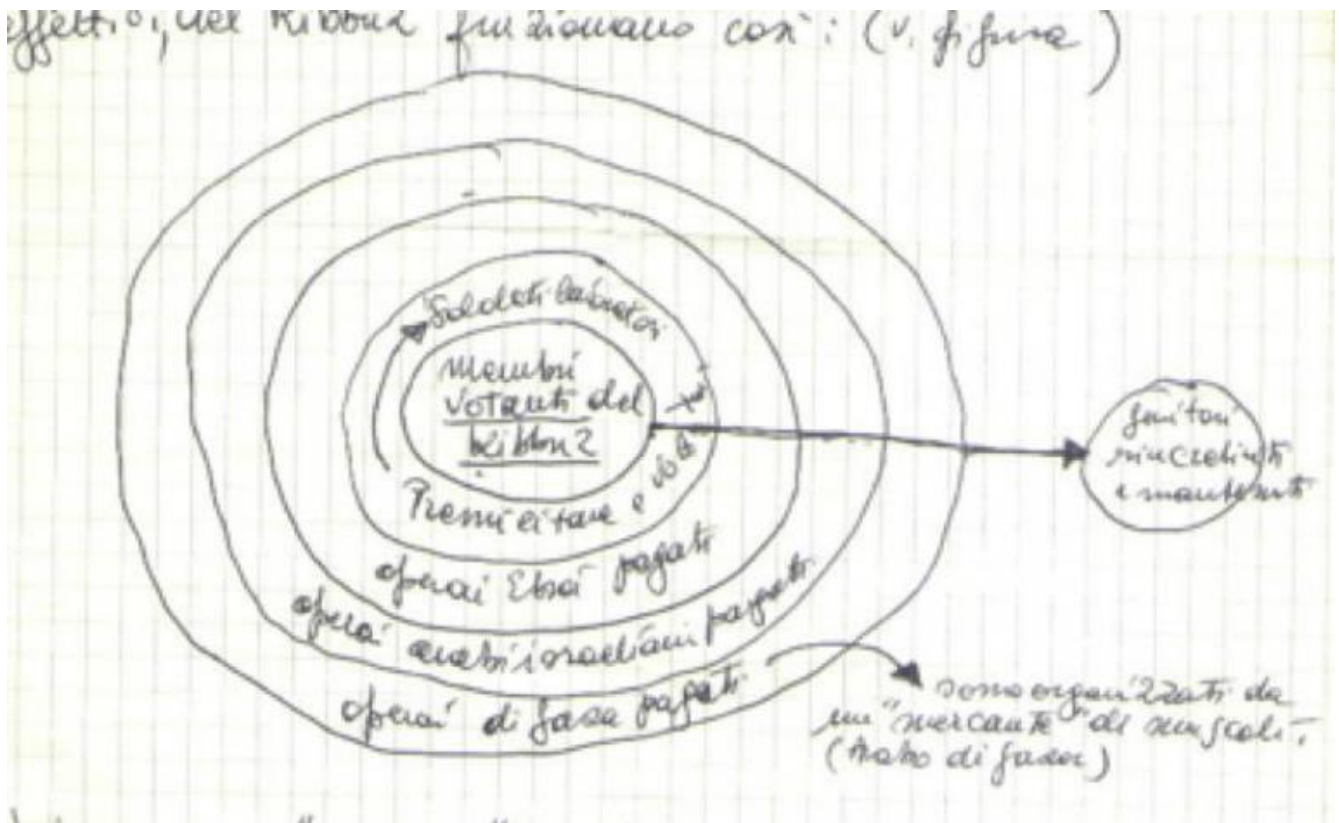 effettivi, nel Kibbuz funzionano così: (v. figura)
Soldati lavoratori
Membri
votanti del
Kibbuz
e
operai Ebrei pagati
operai arabi israeliani pagati
operai di Gaza pagati
genitori
rincretiniti
e mantenuti
sono organizzati da
un "mercante" di muscoli.
(arabo di Gaza)